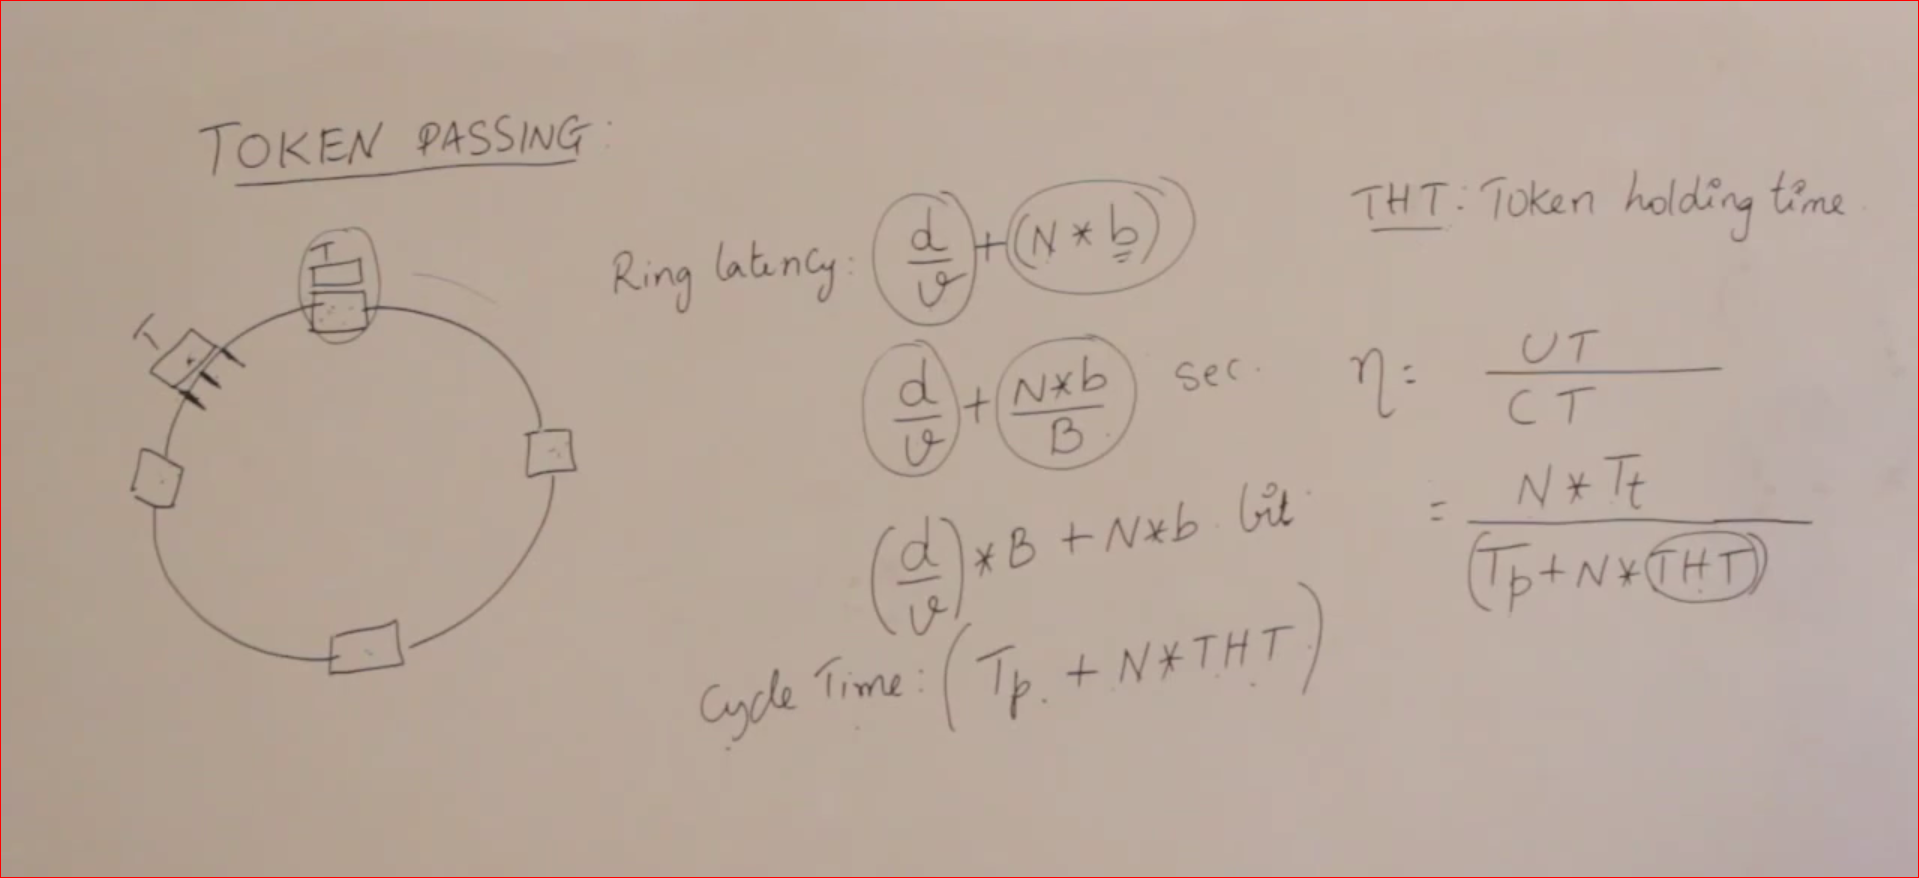 TOKEN PASSING:
T
T
Ring latency: d/v + (N * b)
d/v + N*b/B sec.
(d/v) * B + N*b. bit
Cycle Time: (Tp. + N*THT)
THT: Token holding time
η = UT/CT
= N * Tt/(Tp + N * THT)